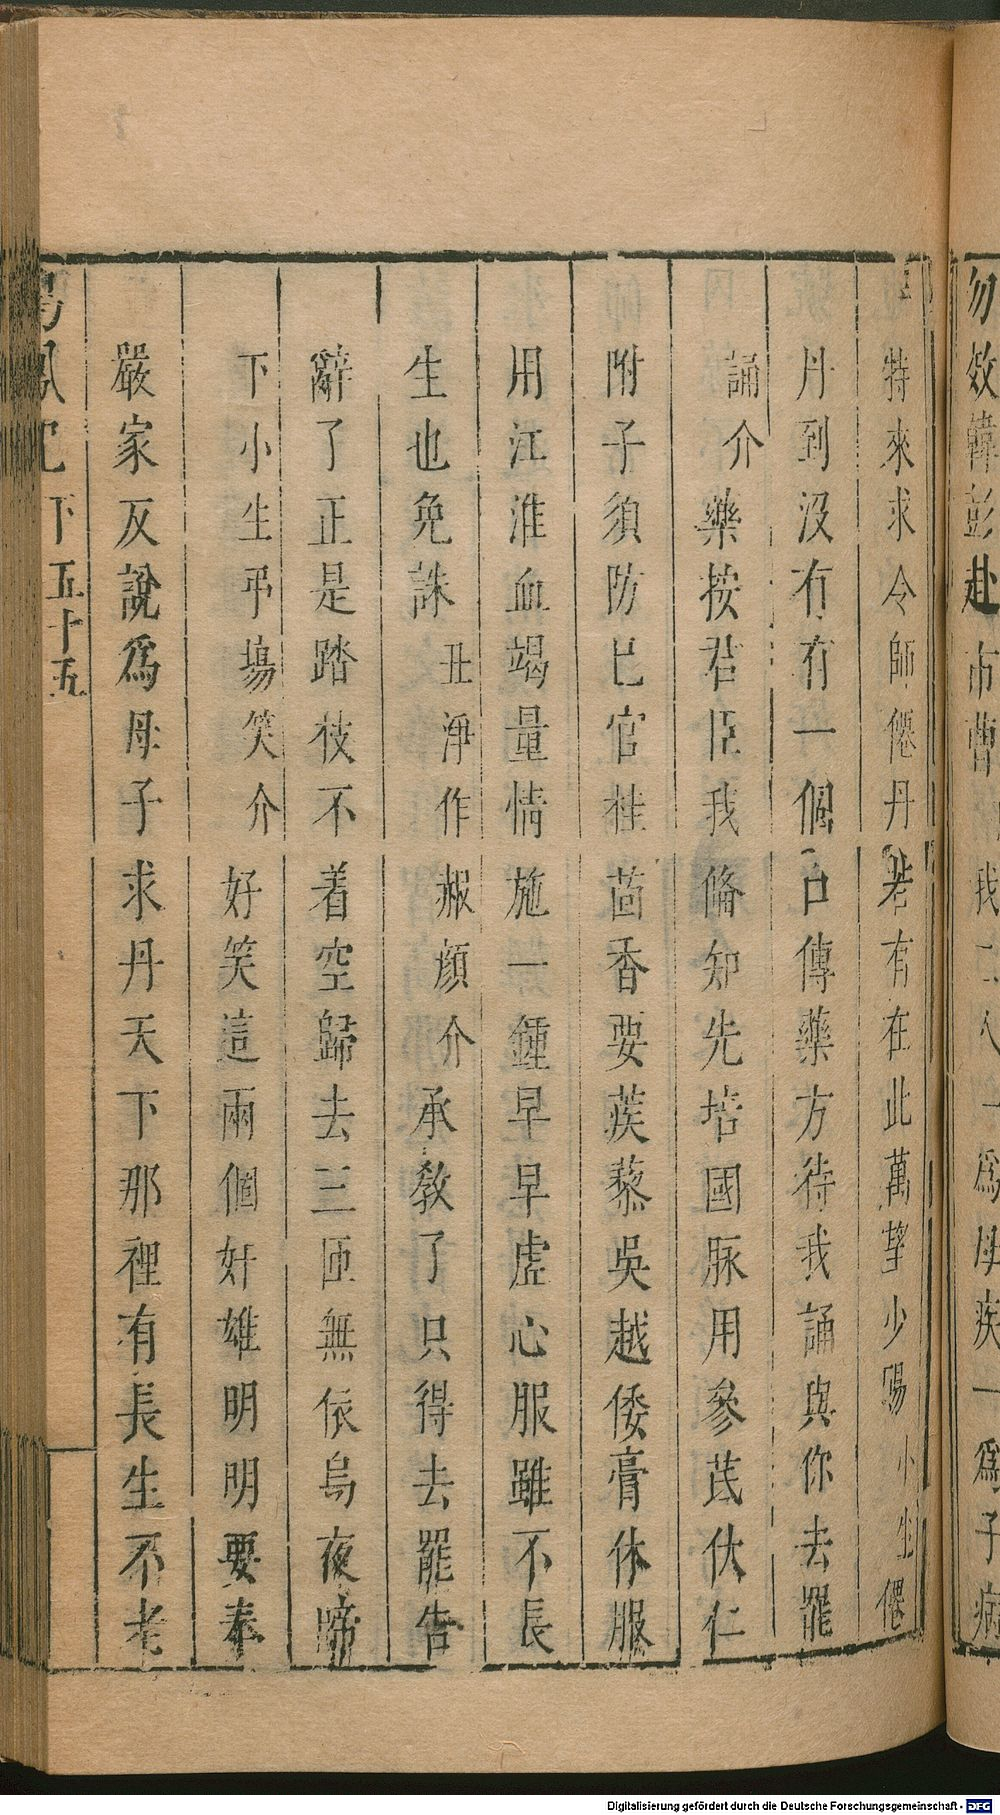 勿效韓彭赴市曹 我二人一爲母疾一爲子病
特來求令師僊丹若有在此萬望少賜小生僊
丹到沒有有一個口傳藥方待我誦與你去罷
誦介藥按君臣我脩知先培國脉用參芪伏仁
附子須防巳官桂茴香要蒺藜吳越倭膏休服
用江淮血竭量情施一鍾早早虛心服雖不長
生也免誅丑淨作赧顔介承教了只得去罷告
辭了正是踏枝不着空歸去三匝無依烏夜啼
下小生弔塲笑介好笑這兩個奸雄明明要奉
嚴家反說爲母子求丹天下那裡有長生不老
鳴鳳記下五十五
Digitalisierung gefördert durch die Deutsche Forschungsgemeinschaft - DFG